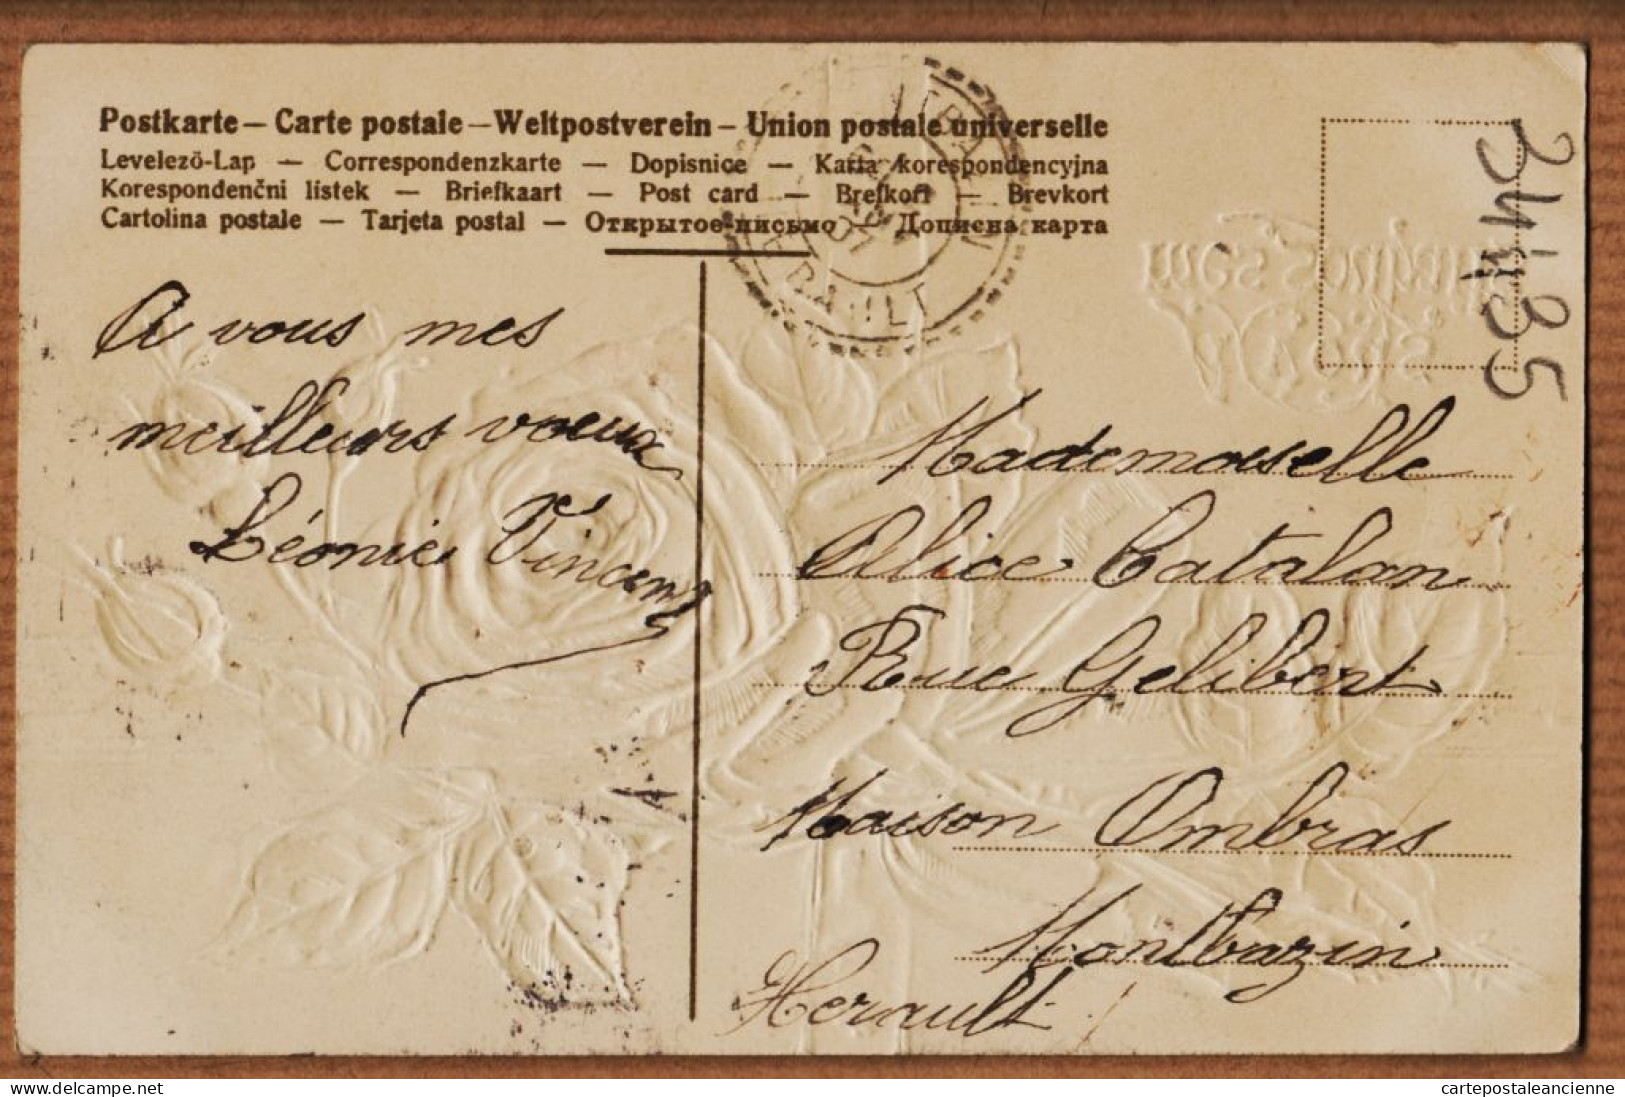 Postkarte — Carte postale — Weltpostverein — Union postale universelle
Levelezö-Lap — Correspondenzkarte — Dopisnice — Karta korespondencyjna
Korespondenčni lístek — Briefkaart — Post card — Brefkort — Brevkort
Cartolina postale — Tarjeta postal — Открытое письмо — Дописна карта
34135
A vous mes
meilleurs voeux
Léonie Vincent
Mademoiselle
Alice Catalan
Rue Gelibert
Maison Ombras
Montbazin
Herault
HERAULT
cartepostaleancienne